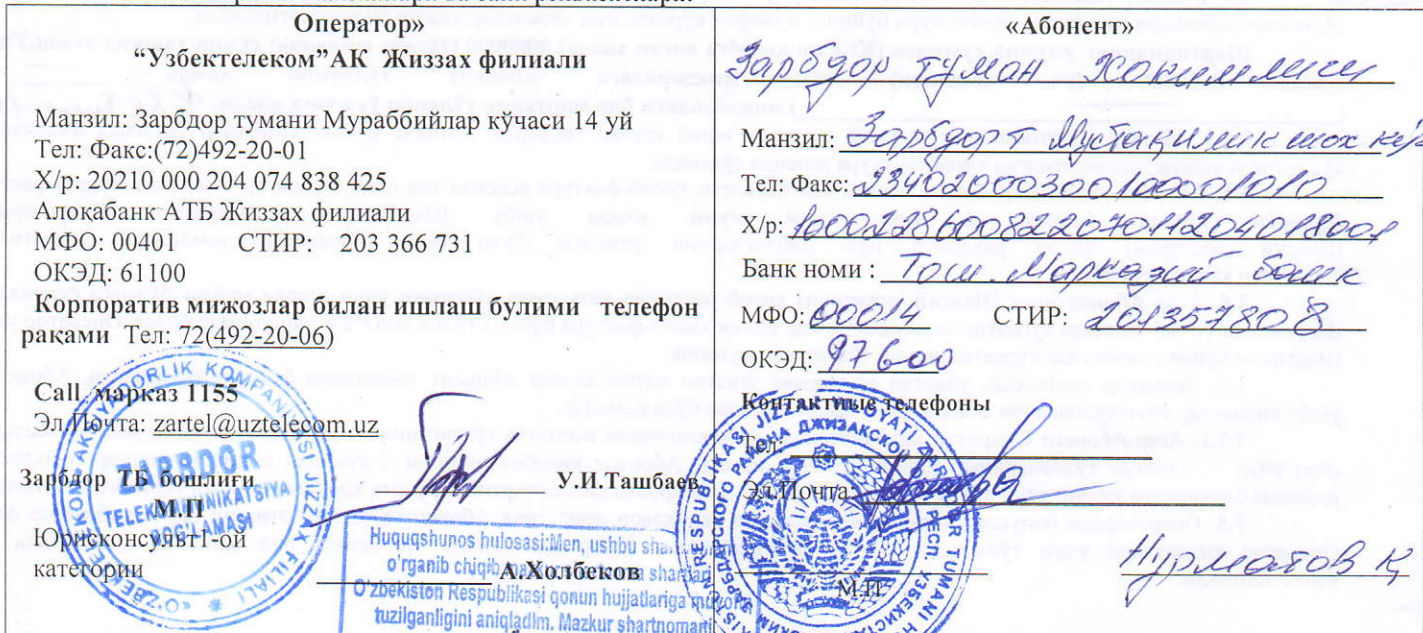 Оператор»
“Узбектелеком”АК Жиззах филиали
Манзил: Зарбдор тумани Мураббийлар кўчаси 14 уй
Тел: Факс:(72)492-20-01
Х/р: 20210 000 204 074 838 425
Алоқабанк АТБ Жиззах филиали
МФО: 00401 СТИР: 203 366 731
ОКЭД: 61100
Корпоратив мижозлар билан ишлаш булими телефон
рақами Тел: 72(492-20-06)
Call марказ 1155
Эл.Почта: zartel@uztelecom.uz
Зарбдор ТБ бошлиғи У.И.Ташбаев
М.П
Юрисконсульт1-ой
категории А.Холбеков
ZARBDOR
TELEKOMMUNIKATSIYA
BOG'LAMASI
Huquqshunos hulosasi:Men, ushbu
o'rganib chiqib
O'zbekiston Respublikasi qonun hujjatlariga
tuzilganligini aniqladim. Mazkur shartnomani
«Абонент»
Зарбдор туман Хокимлиги
Манзил: Зарбдор т Мустақиллик шох кўч
Тел: Факс: 23402000300100001010
Х/р: 160022860082207011204018001
Банк номи : Тош. Марказий банк
МФО: 00014 СТИР: 201357808
ОКЭД: 97600
Контактные телефоны
Тел:
Эл.Почта:
М.П
Нурматов Қ